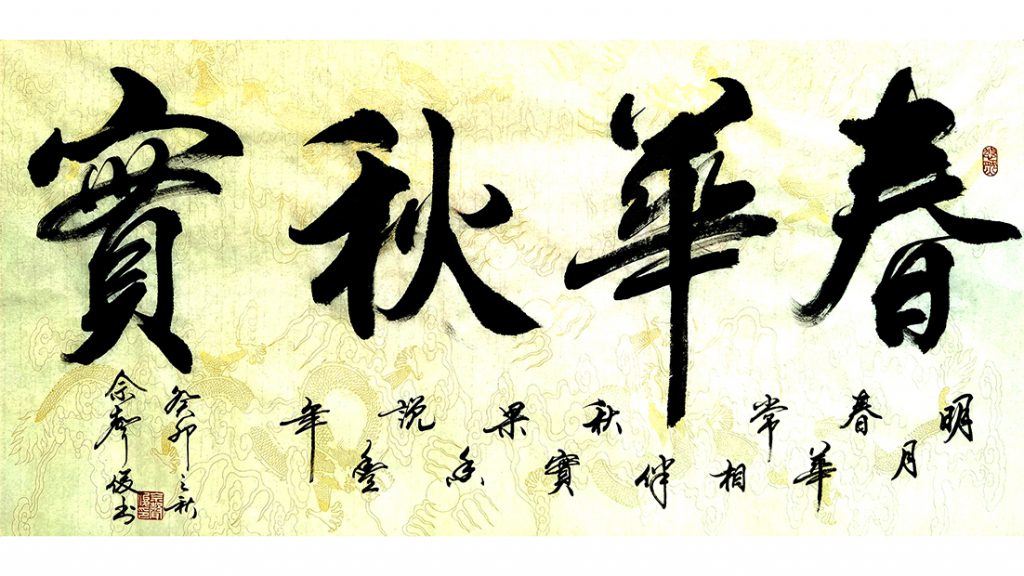 春華秋實
明月春華常相伴秋實果香說豐年
癸卯之秋
书